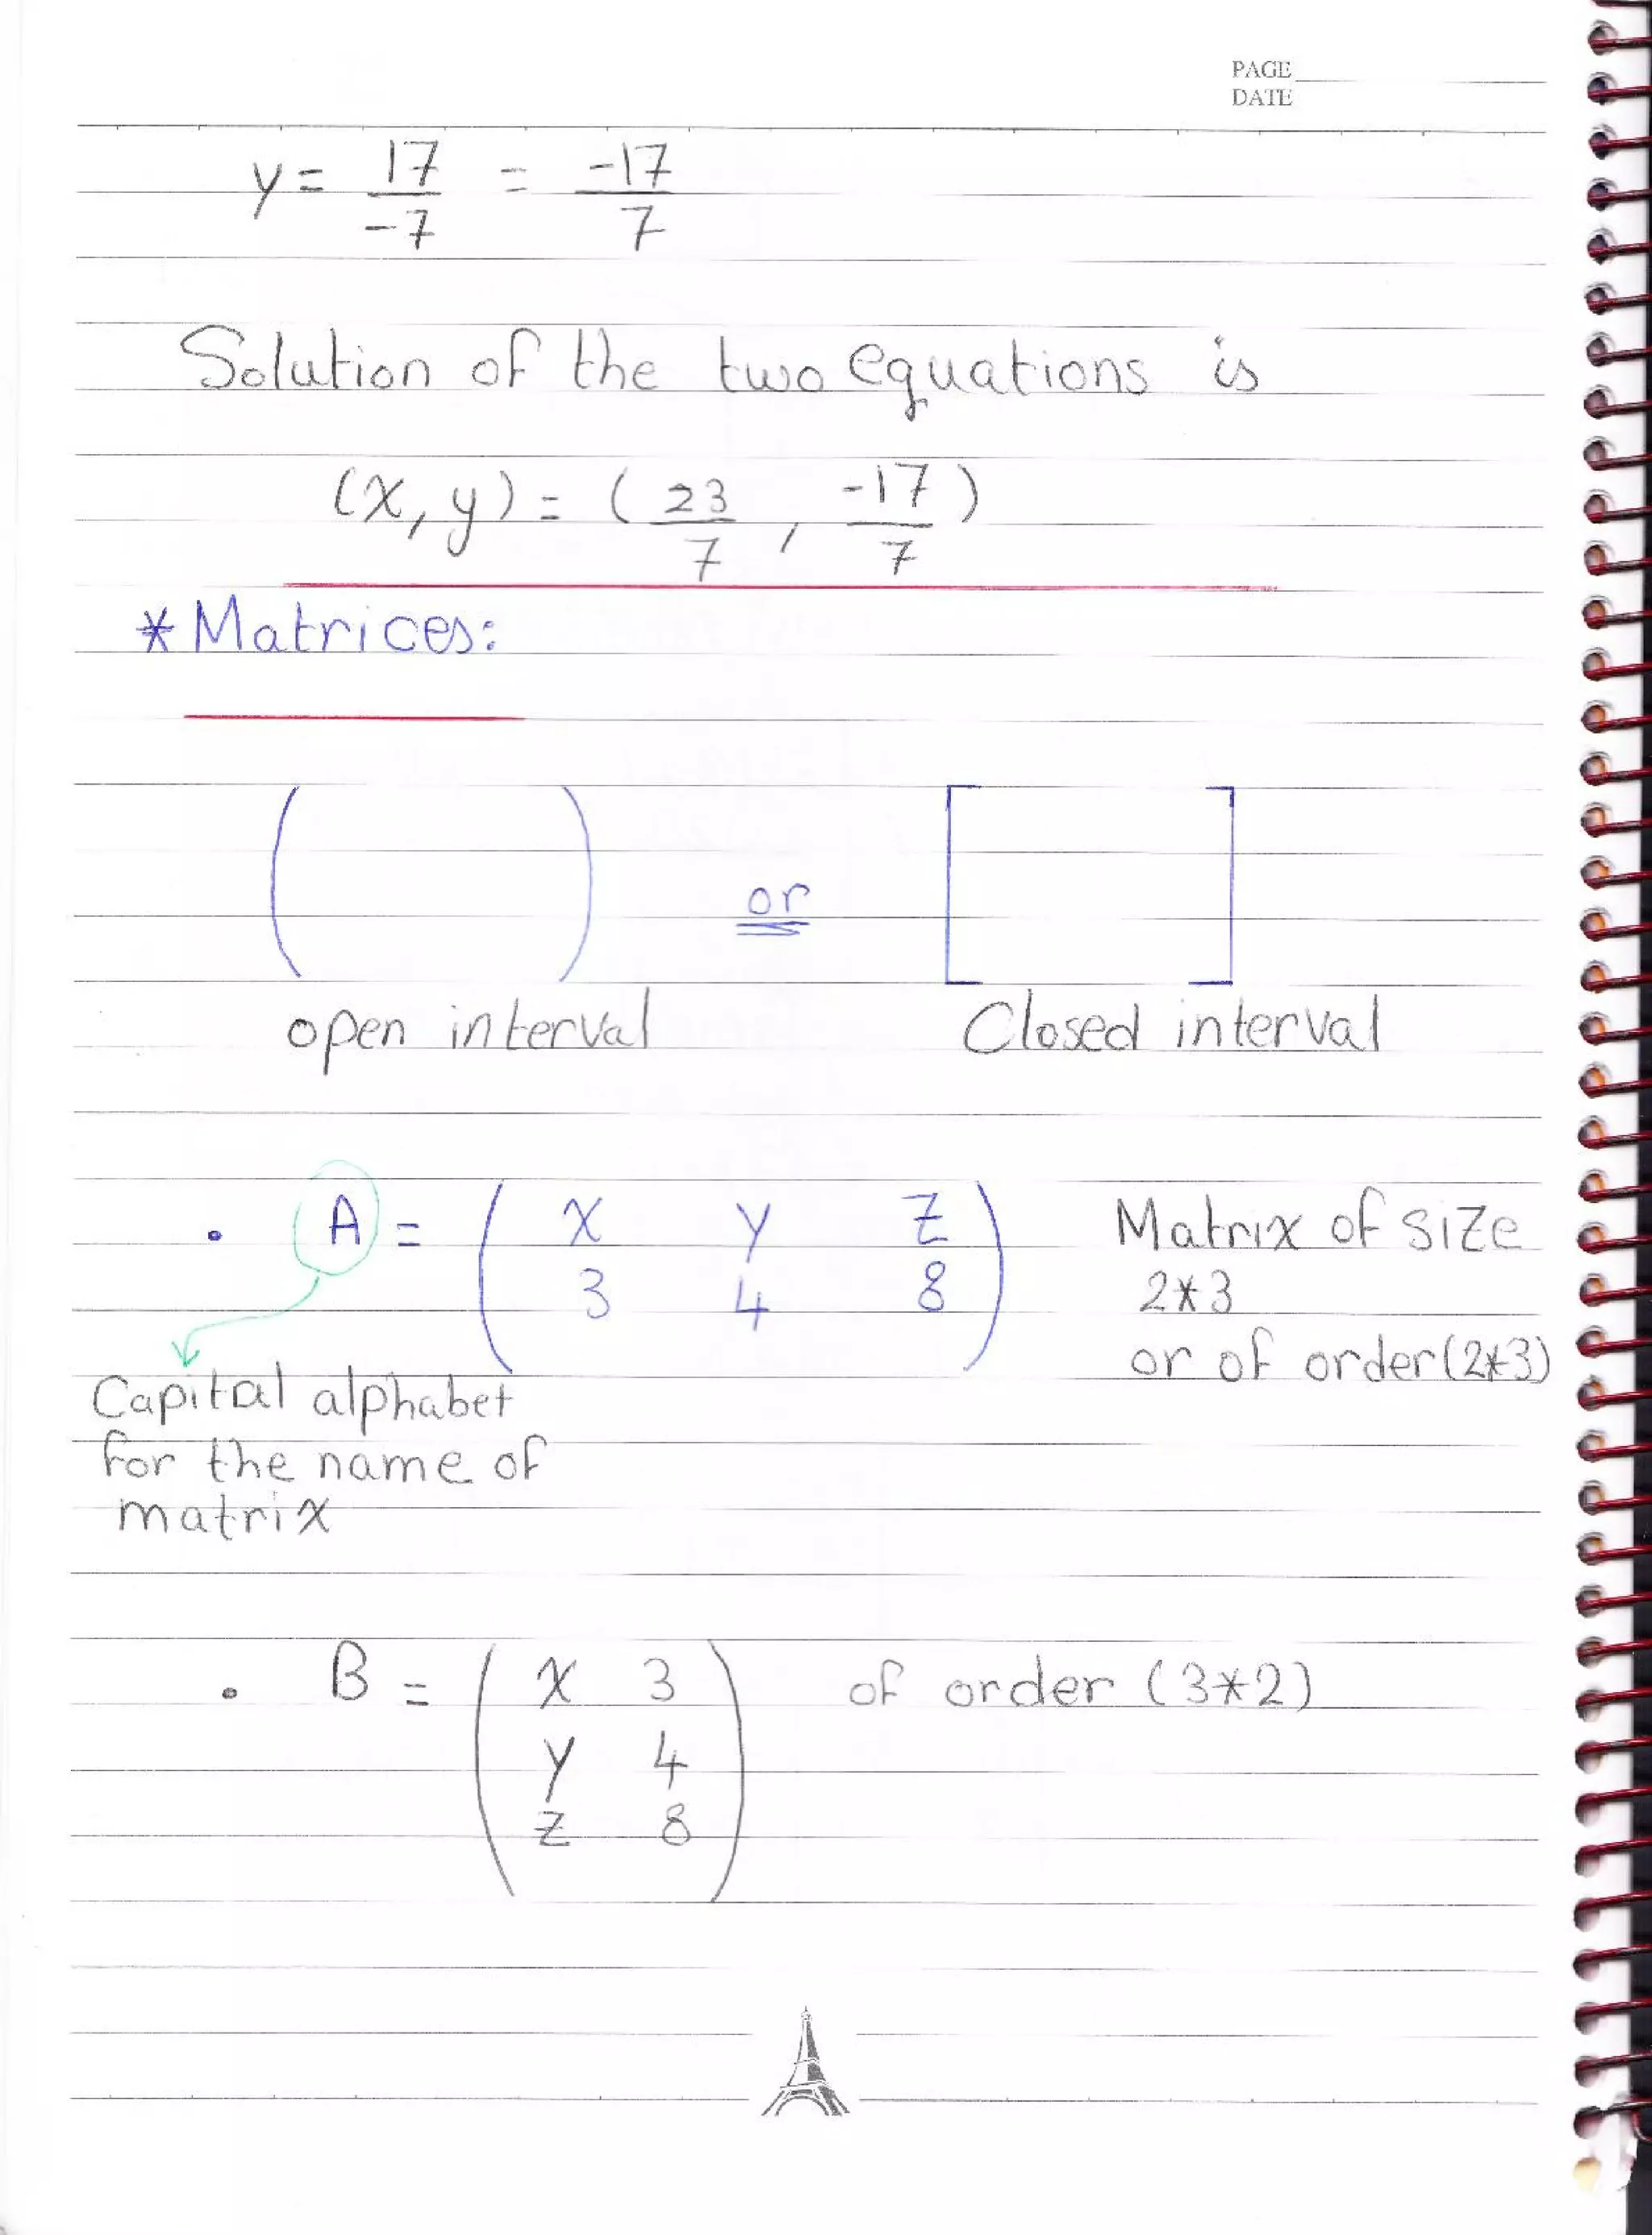 PAGE
DATE
y = 17/-7 = -17/7
Solution of the two equations is
(x, y) = (23/7, -17/7)
* Matrices:
( ) or [ ]
open interval Closed interval
• A = ( x y z Matrix of size
3 4 8 ) 2*3
or of order (2*3)
Capital alphabet
for the name of
matrix
• B = ( x 3 of order (3*2)
y 4
z 8 )